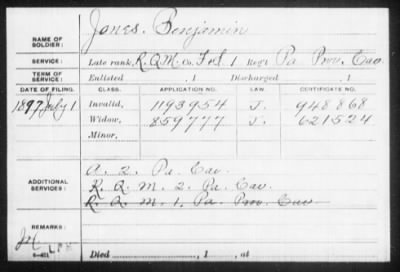 NAME OF SOLDIER: Jones, Benjamin
SERVICE: Late rank, R.Q.M. Co. F&S, 1 Reg't Pa Prov. Cav.
TERM OF SERVICE: Enlisted , 1 Discharged , 1
DATE OF FILING. CLASS. APPLICATION NO. LAW. CERTIFICATE NO.
1897 July 1 Invalid, 1193954 J. 948868
Widow, 859777 J. 621524
Minor,
ADDITIONAL SERVICES: A. 2. Pa. Cav.
R. Q. M. 2. Pa. Cav.
R. Q. M. 1. Pa. Prov. Cav
REMARKS:
Died , 1 , at